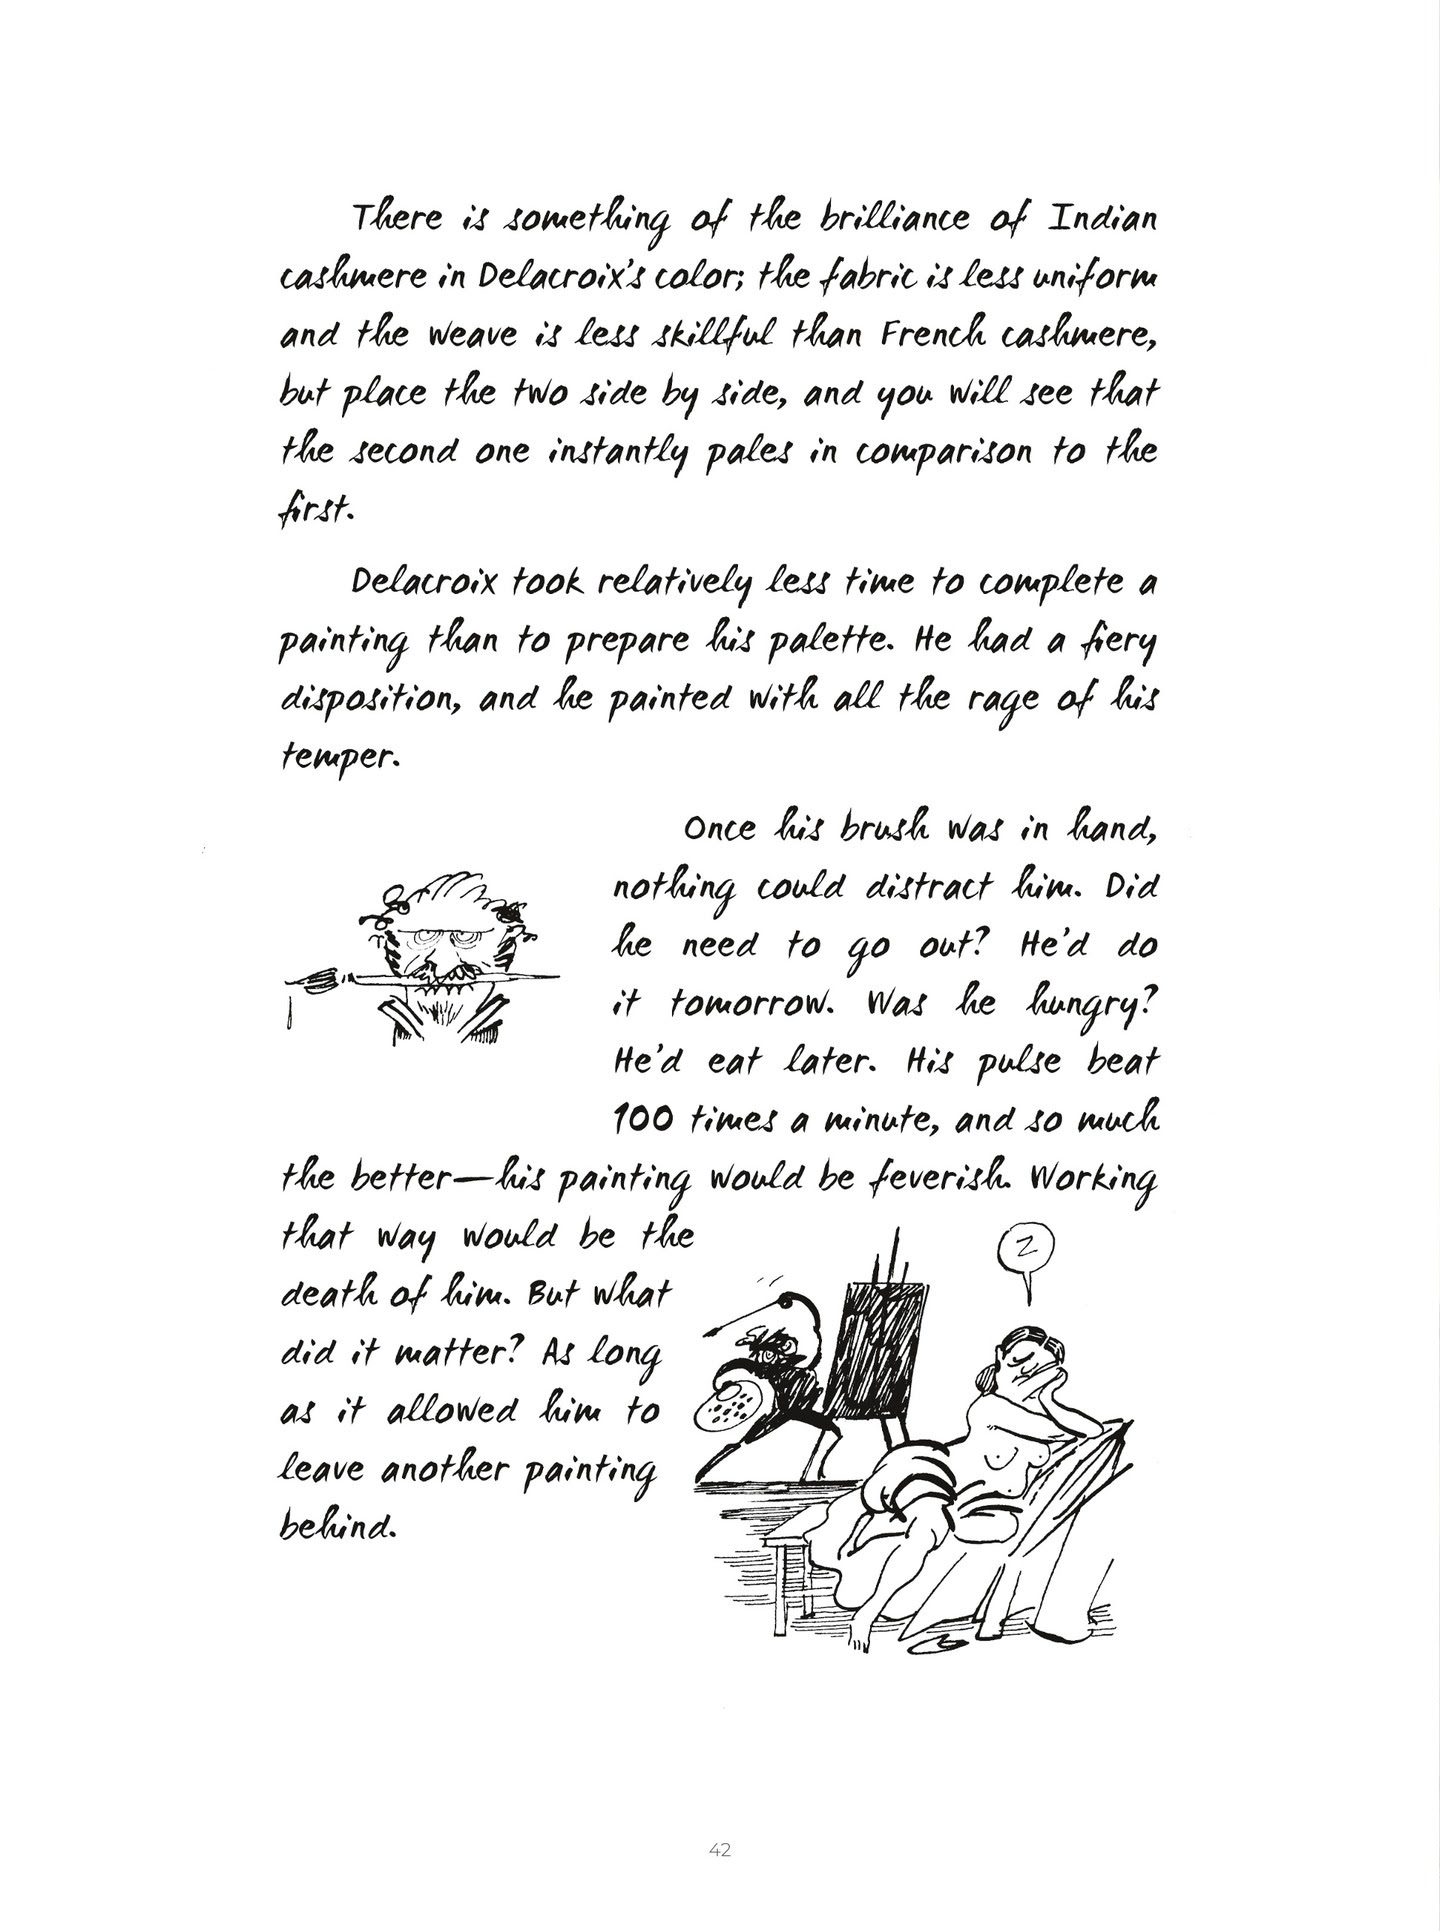 There is something of the brilliance of Indian
cashmere in Delacroix's color; the fabric is less uniform
and the weave is less skillful than French cashmere,
but place the two side by side, and you will see that
the second one instantly pales in comparison to the
first.
Delacroix took relatively less time to complete a
painting than to prepare his palette. He had a fiery
disposition, and he painted with all the rage of his
temper.
Once his brush was in hand,
nothing could distract him. Did
he need to go out? He'd do
it tomorrow. Was he hungry?
He'd eat later. His pulse beat
100 times a minute, and so much
the better—his painting would be feverish. Working
that way would be the
death of him. But what
did it matter? As long
as it allowed him to
leave another painting
behind.
Z
42